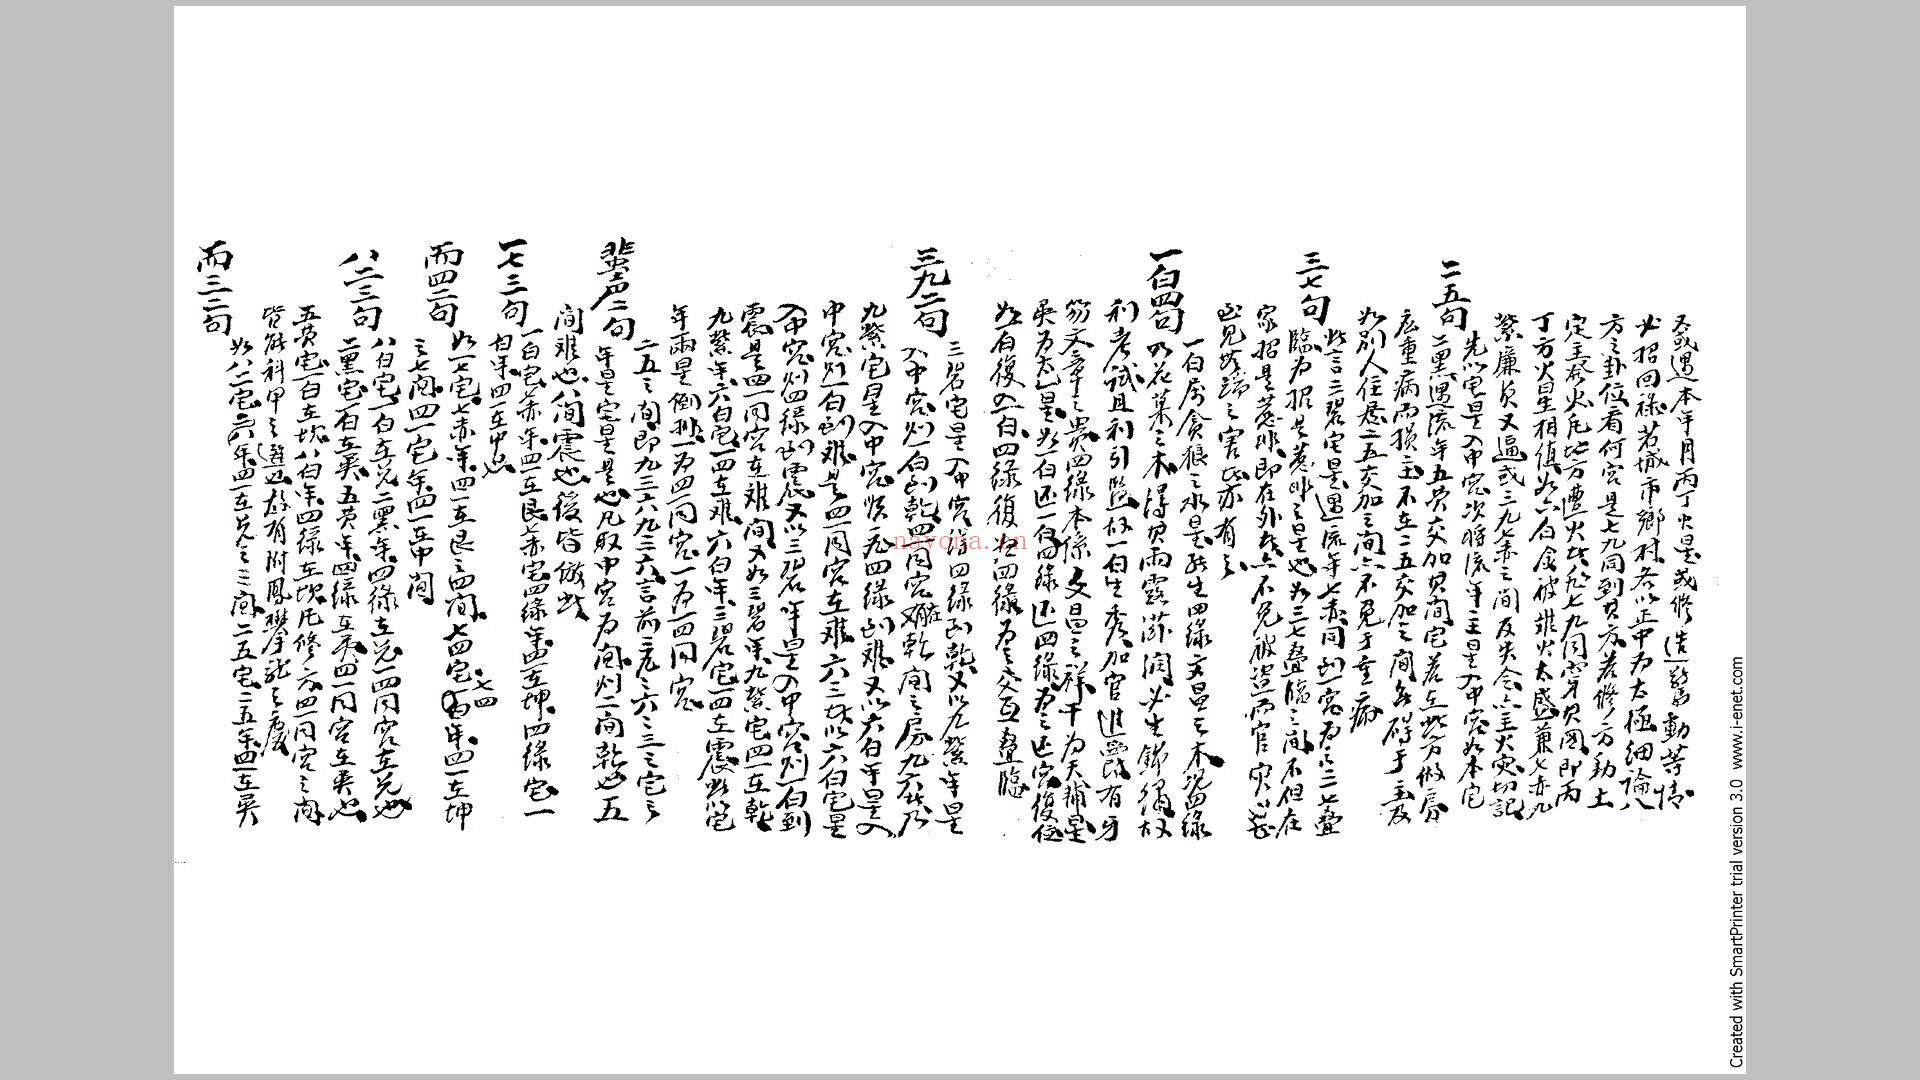 又或遇本年月丙丁火星或修造驚動等情
必招回祿若城市鄉村各以正中為太極細論八
方之卦位看何宮是七九同到其方若修方動土
定主發火
丁方火星相值如六白金被離火太盛兼七赤九
紫廉貞又逼或二九七赤之間反失令亦主火災切記
二五句
先以宅星入中宮次將流年主星入中宮如本宅
二黑遇流年五黃交加其間宅若在此方做房
店重病而損主不在二五交加之間無碍于主及
如別人住居二五交加之間亦不免于重病
三七句
此言三碧宅星遇流年七赤同到一宮為之三七叠
臨為招是惹非之是也如三七叠臨之間不但在
家招是惹非即在外出亦不免被盜而官災
之害皆亦有之
一白四句
一白屬貪狼之水星能生四綠文昌之木況四綠
乃花葉之木得其雨露滋潤必生錦繡故
利考試且利引監故一白生秀加官進爵有牙
笏文章之貴四綠本係文昌之祥干為天輔星
巽為宅星如一白還一白四綠還四綠為之还宮復位
如一白復入一白四綠復加四綠為之交互叠臨
三九二句
三碧宅星入中宮將四綠到乾又以九紫年星
入中宮則一白到乾四一同宮在乾間之房九六
九紫宅星入中宮順飛四綠到離又以六白年星入
中宮則一白到離是四一同宮在離六三故以六白宅星
入中宮則四綠到震又以三碧年星入中宮則一白到
震是四一同宮在離間又如三碧年九紫宅四一在乾
九紫年六白宅一四在離六白年三碧宅一四在震
年兩星倒排一為四一同宮一為一四同宮
二五之間即九三六九三六言前三九之六三三宅之
蜚声二句
年星宅星是也凡取中宮為間則二間乾也五
間離也八間震也後皆倣此
一七三句
一白宅七赤年四一在艮七赤宅四綠年四一在坤四綠宅一
白年四一在中也
而四二句
如一七宅七赤年四一在艮之四間七四宅七四年四一在坤
之七間四一宅年四一在中間
八二三句
八白宅一白在兌二黑年四綠在兌一四同宮在兌也
二黑宅一白在巽五黃年四綠在巽四一同宮在巽也
五黃宅一白在坎八白年四綠在坎凡修方四一同宮之間
皆能科甲之選也故有附鳳攀龍之慶
而三二句
如八二宅二八年四一在兌之三間二五宅二五年四一在巽
navona.cn
Created with SmartPrinter trial version 3.0 www.i-enet.com